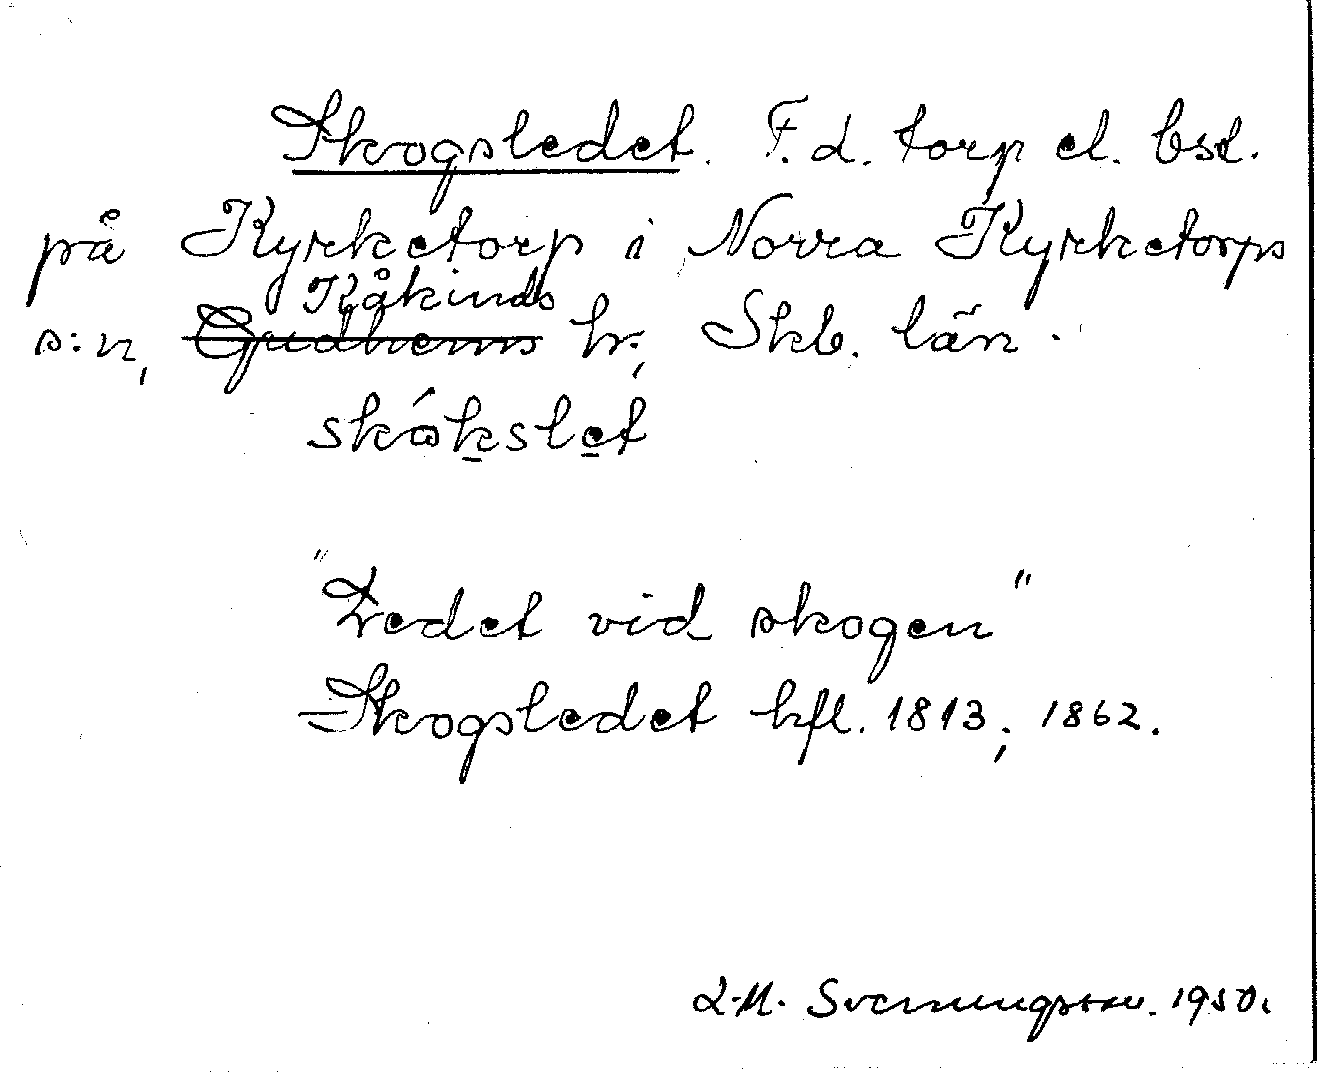 Skogsledet. F.d. torp el. bst.
på Kyrketorp i Norra Kyrketorps
Kåkinds
s:n, Gudhems hr, Skb. län.
skǻk̲sle̲t
"Ledet vid skogen"
Skogsledet hfl. 1813; 1862.
L-M. Svenningsson. 1950.